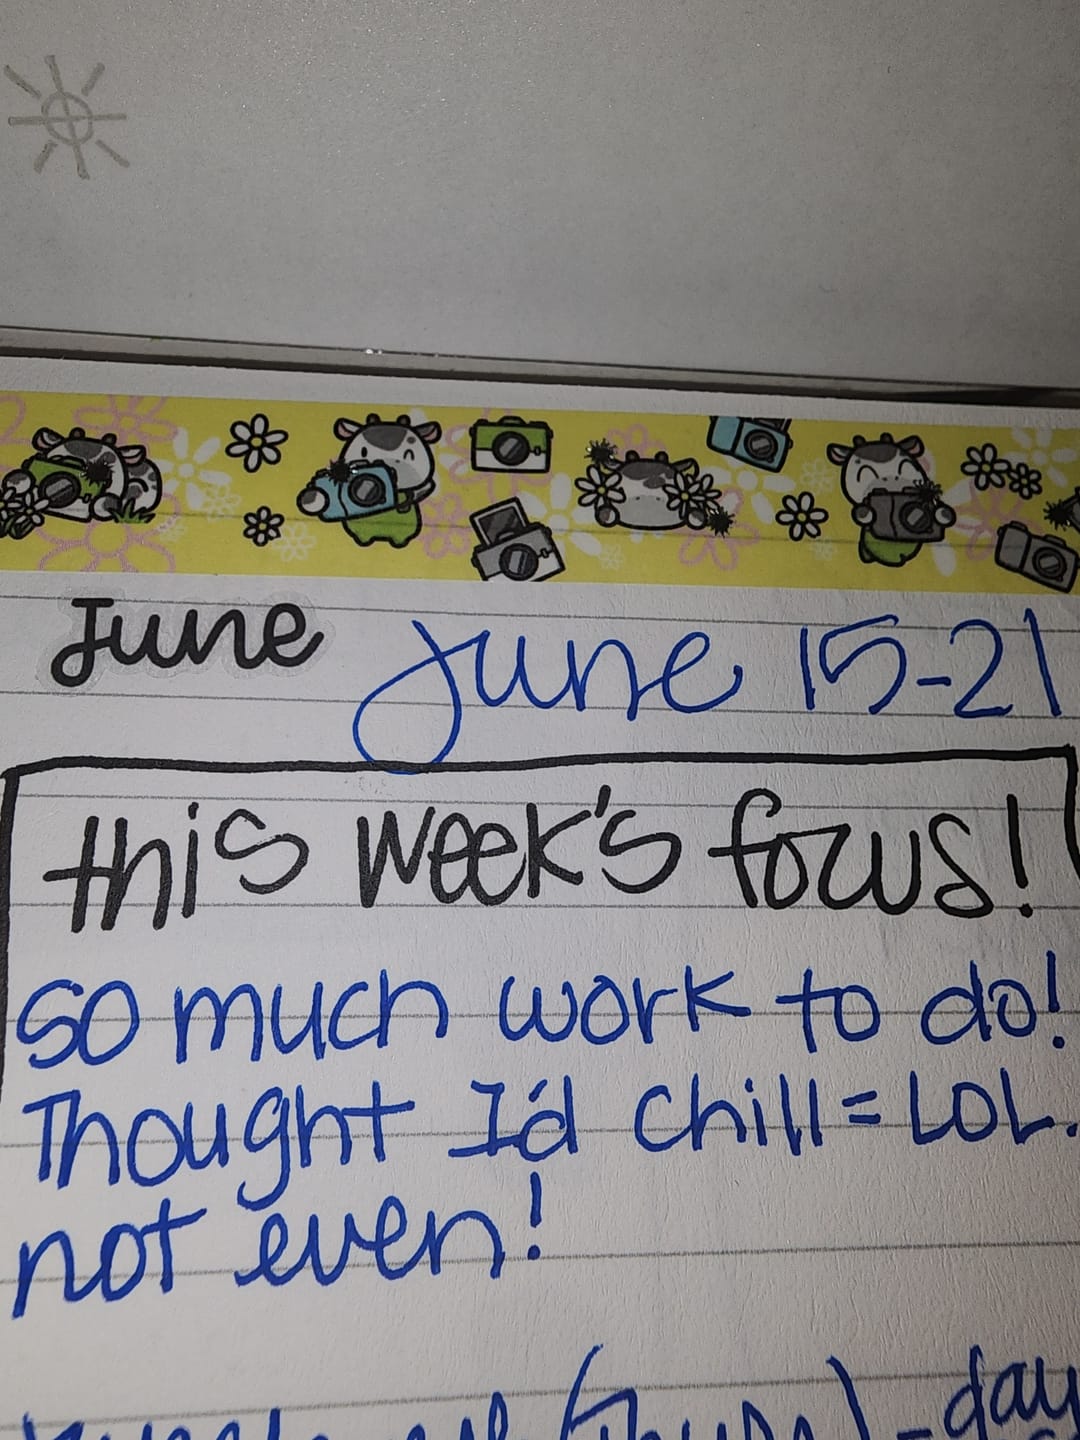 June June 15-21
this week's focus!
so much work to do!
Thought I'd chill = LOL.
not even!
day